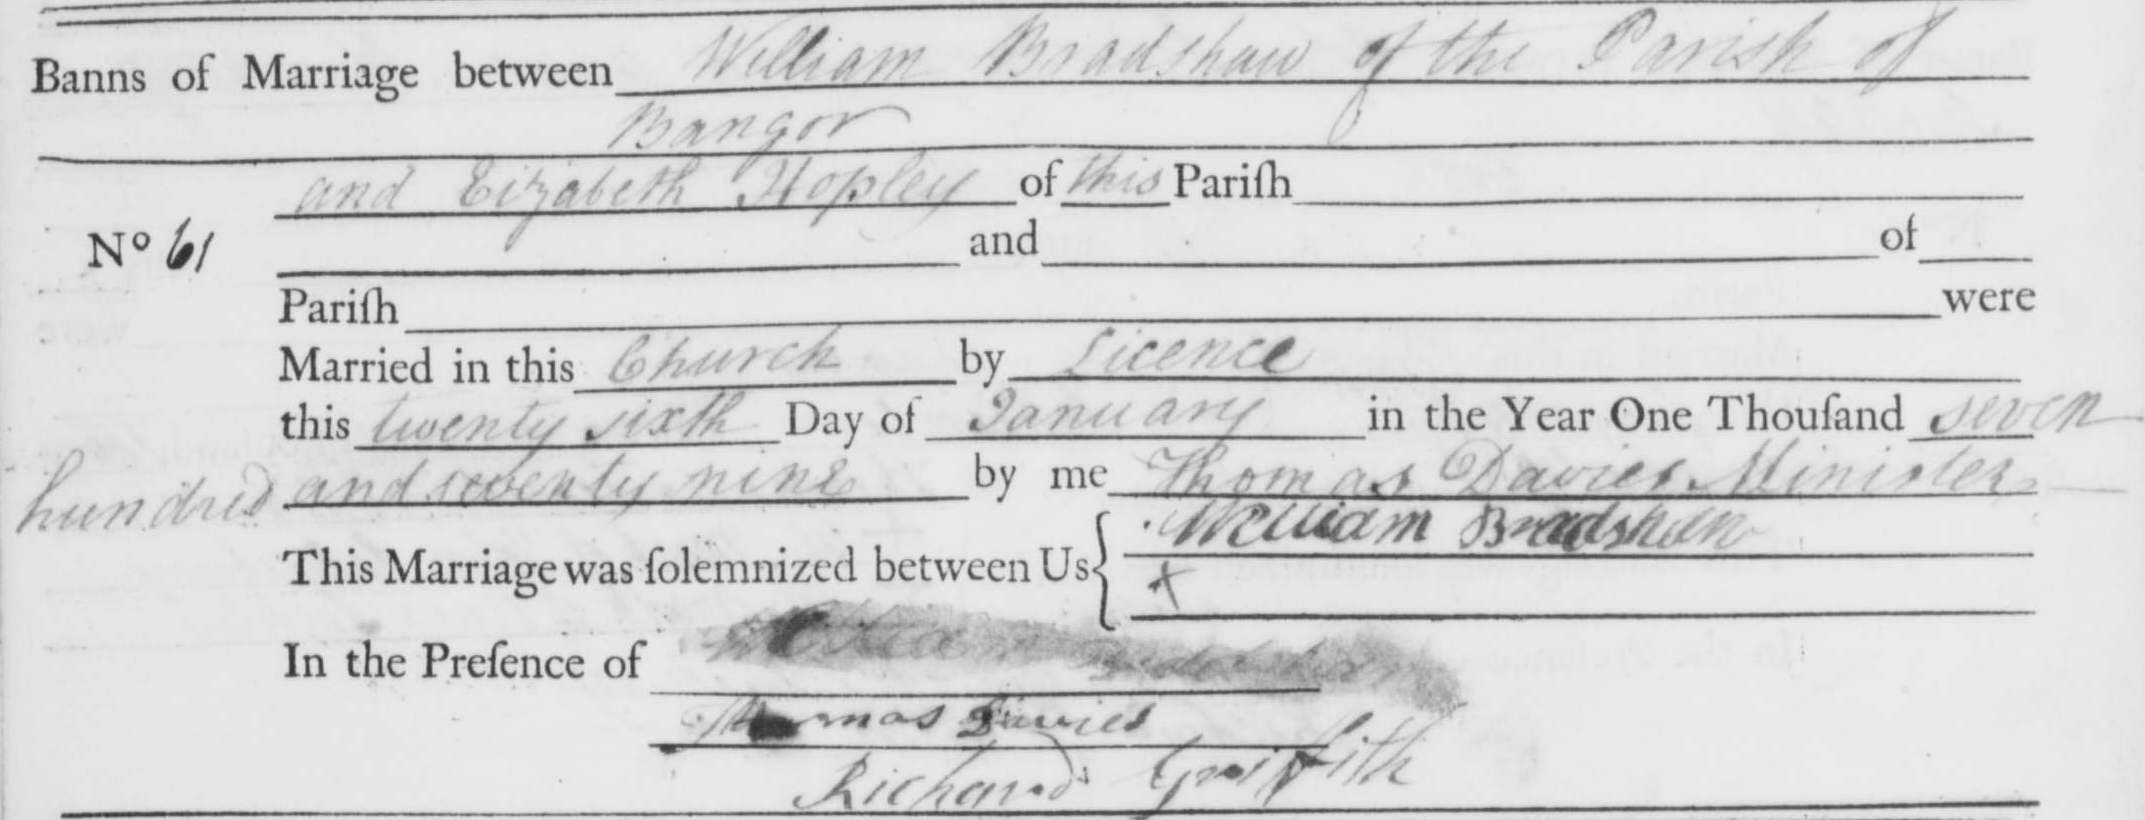 Banns of Marriage between William Bradshaw of the Parish of
Bangor
and Elizabeth Hopley of this Pariſh
Nº 61 and of
Pariſh were
Married in this Church by Licence
this twenty sixth Day of January in the Year One Thouſand seven
hundred and seventy nine by me Thomas Davies Minister
William Bradshaw
This Marriage was ſolemnized between Us
x
In the Preſence of
Thomas Davies
Richard Griffith